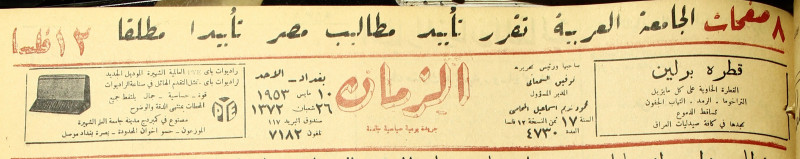 ٨ صفحات الجامعة العربية تقرر تأييد مطالب مصر تأييدا مطلقا ١٢ فلسا
قطرة برلين
القطرة الحاوية على كل مايزيل
التراخوما . الرمد . التهاب الجفون
تساقط الدموع
تجدها في كافة صيدليات العراق
صاحبها ورئيس تحريره
توفيق السمعاني
المدير المسؤول
محمود نديم اسماعيل المحامي
السنة ١٧ ثمن النسخة ١٢ فلسا
العدد ٤٧٣٠
الزمان
جريدة يومية سياسية جامعة
بغداد - الاحد
١٠ مايس ١٩٥٣
٢٦ شعبان ١٣٧٢
صندوق البريد ١١٧
تلفون ٧١٨٢
راديوات باي PYE العالمية الشهيرة الموديل الجديد
راديوات باي - تمثل التقدم الهائل في صناعة الراديوات
قوة - حساسية - جمال يلتقط جميع
المحطات بمنتهى الدقة والوضوح
مصنوع في كمبردج مدينة جامعة العلم الشهيرة
الموزعون - حمو اخوان المحدودة - بصرة بغداد موصل
PYE